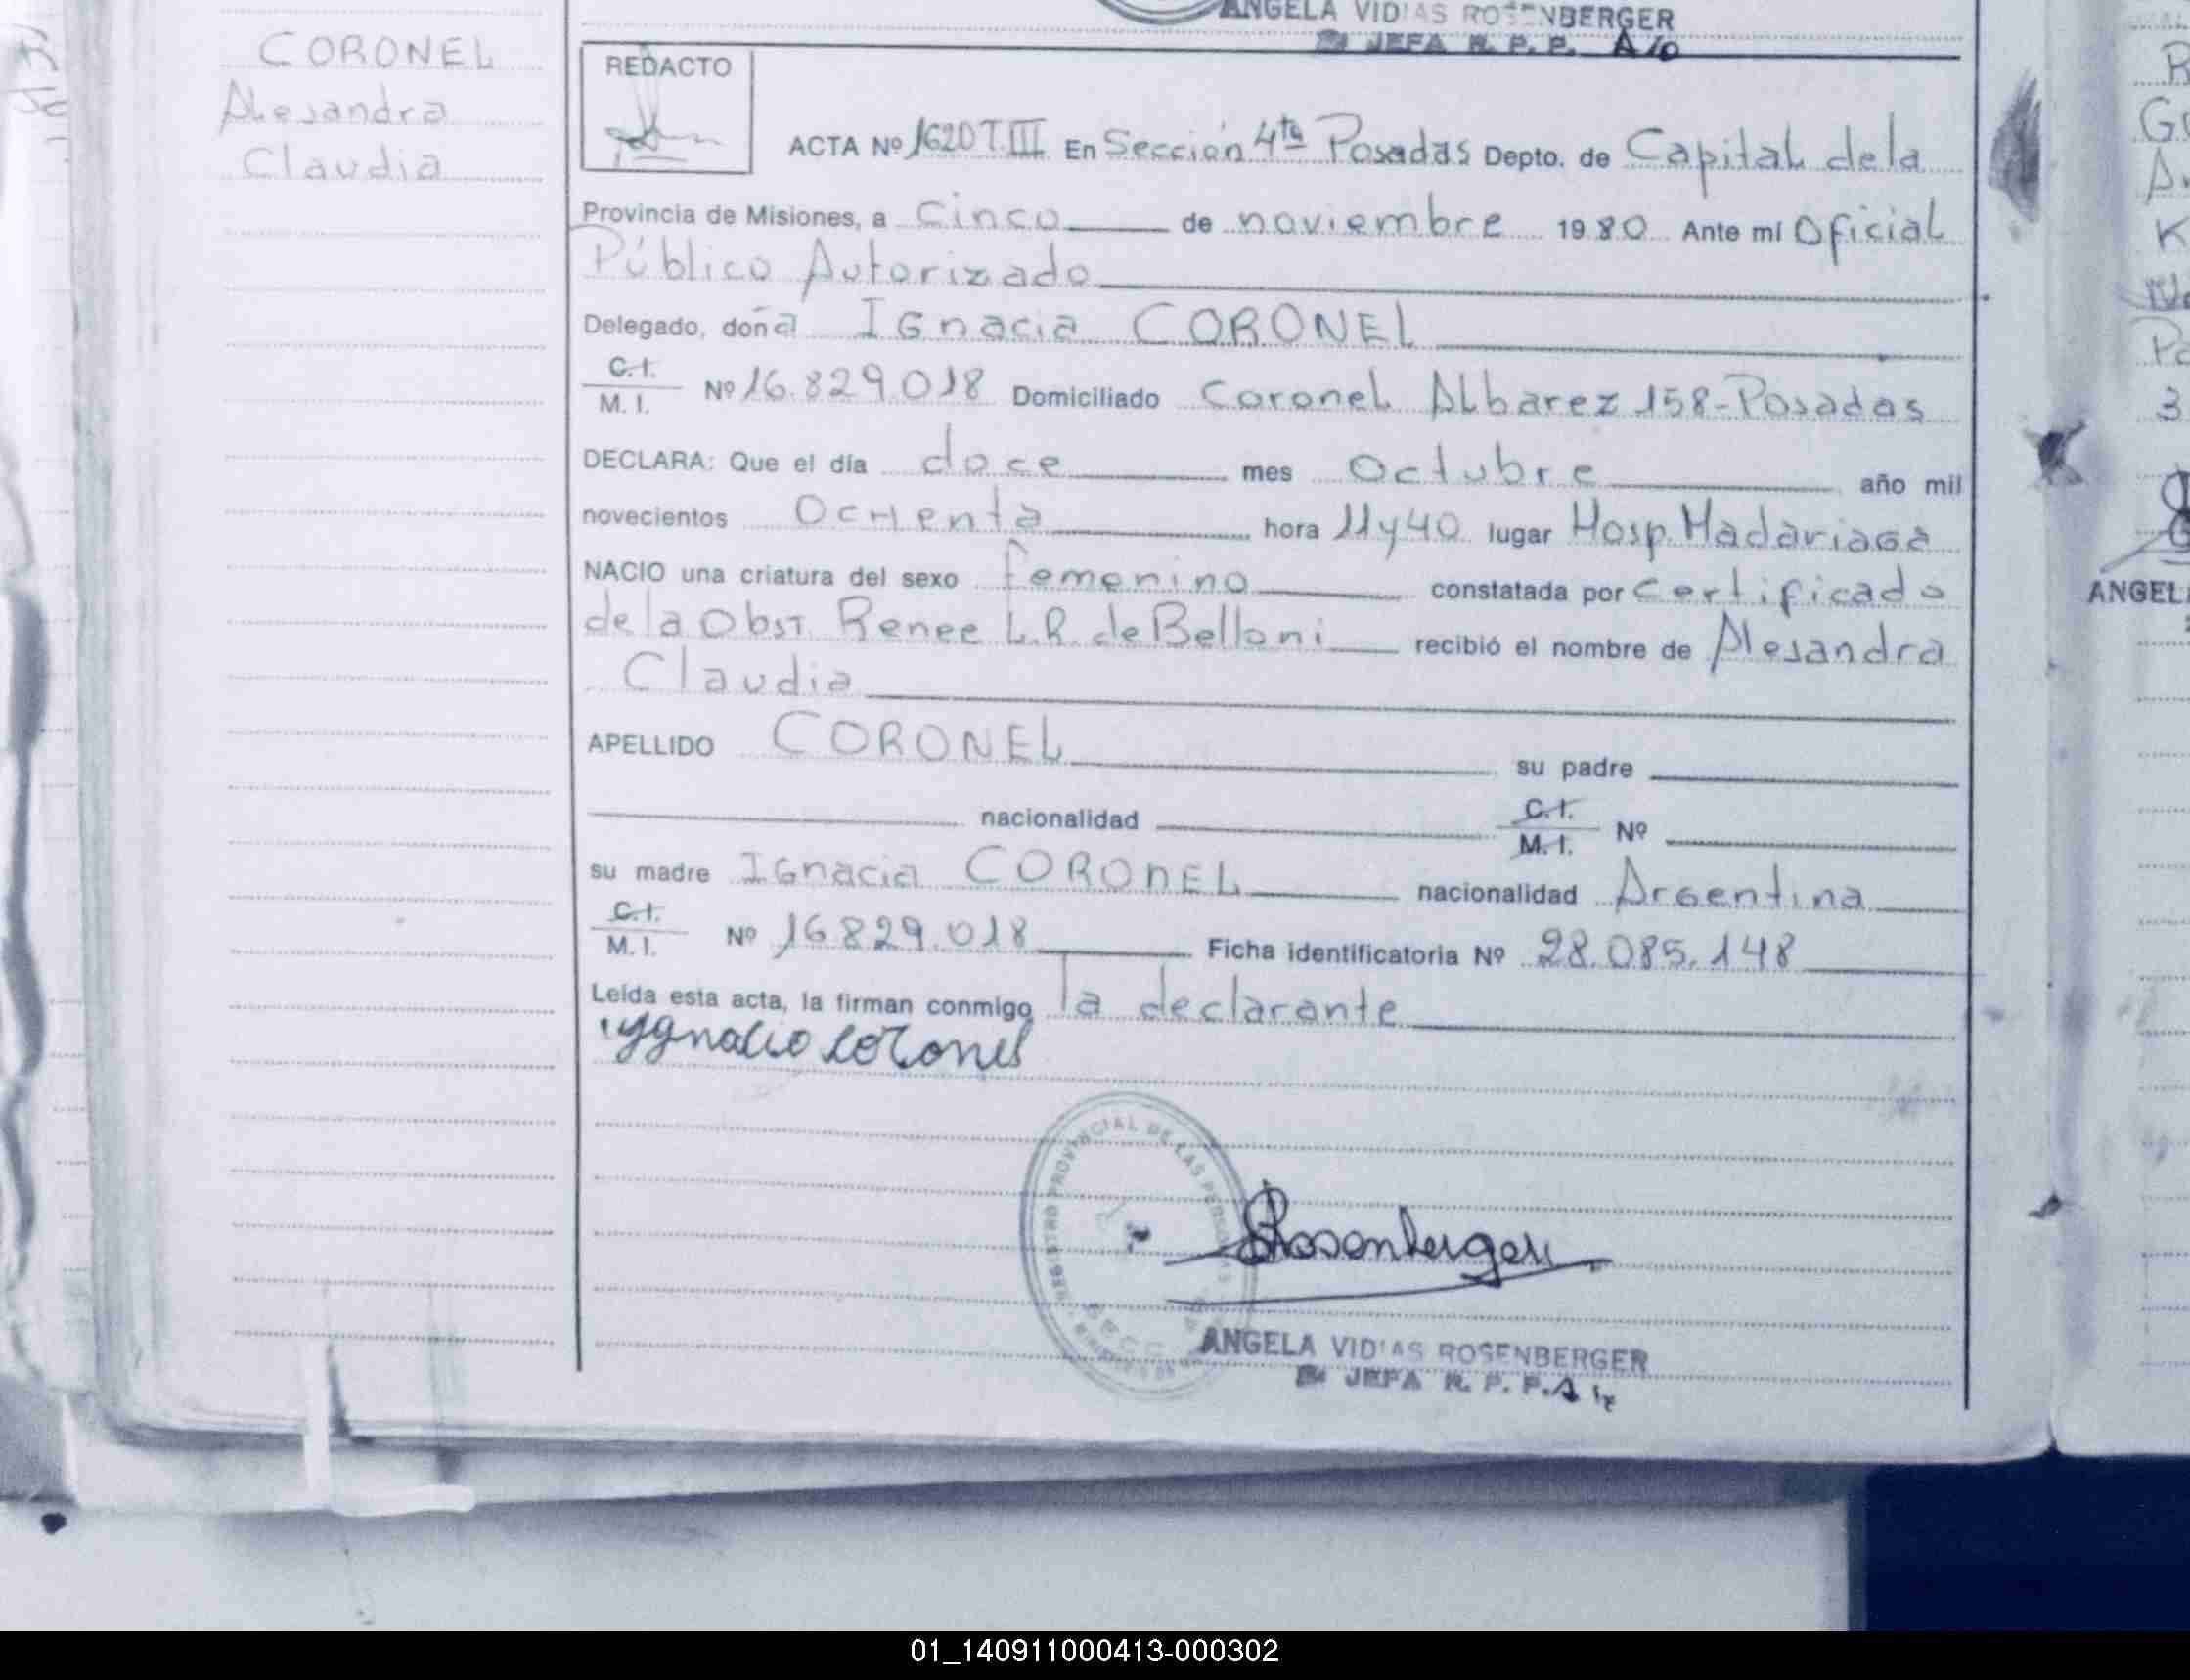 ANGELA VIDIAS ROSENBERGER
JEFA R. P. P. A/c
CORONEL
Alejandra
Claudia
REDACTO
ACTA Nº 1620 T. III En Sección 4ta Posadas Depto. de Capital de la
Provincia de Misiones, a Cinco de noviembre 1980 Ante mí Oficial
Público Autorizado
Delegado, doña Ignacia CORONEL
C.I.
M. I. Nº 16.829.018 Domiciliado Coronel Albarez 158-Posadas
DECLARA: Que el día doce mes Octubre año mil
novecientos Ochenta hora 11 y 40 lugar Hosp. Madariaga
NACIO una criatura del sexo femenino constatada por Certificado
de la Obst. Renee L.R. de Belloni recibió el nombre de Alejandra
Claudia
APELLIDO CORONEL su padre
nacionalidad C.I.
M.I. Nº
su madre Ignacia CORONEL nacionalidad Argentina
C.I.
M. I. Nº 16829.018 Ficha identificatoria Nº 28.085.148
Leída esta acta, la firman conmigo la declarante
ygnacio coronel
REGISTRO PROVINCIAL DE LAS PERSONAS
Rosenberger
ANGELA VIDIAS ROSENBERGER
JEFA R. P. P.
ANGEL
01_140911000413-000302